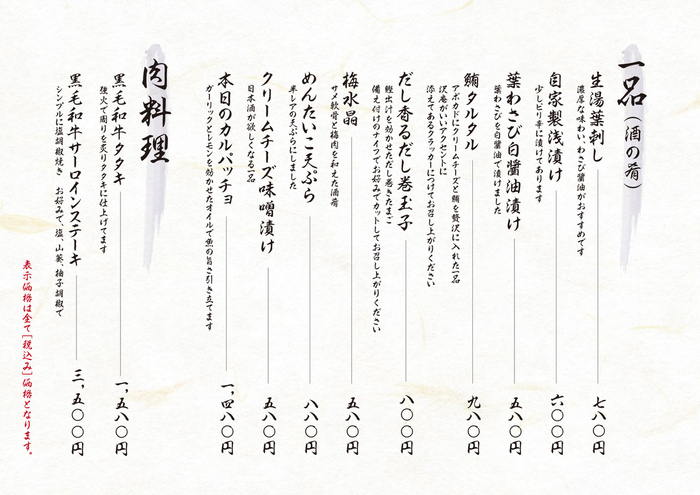 一品(酒の肴)
生湯葉刺し 七八〇円
濃厚な味わい、わさび醤油がおすすめです
自家製浅漬け 六〇〇円
少しピリ辛に漬けてあります
葉わさび白醤油漬け 五八〇円
葉わさびを白醤油で漬けました
鮪タルタル 九八〇円
アボカドにクリームチーズと鮪を贅沢に入れた一品
沢庵がいいアクセントに
添えてあるクラッカーにつけてお召し上がりください
だし香るだし巻玉子 八〇〇円
鰹出汁を効かせただし巻きたまご
備え付けのナイフでお好みでカットしてお召し上がりください
梅水晶 五八〇円
サメ軟骨と梅肉を和えた酒肴
めんたいこ天ぷら 八八〇円
半レアの天ぷらにしました
クリームチーズ味噌漬け 五八〇円
日本酒が欲しくなる一品
本日のカルパッチョ 一,四八〇円
ガーリックとレモンを効かせたオイルで魚の旨さ引き立てます
肉料理
黒毛和牛タタキ 一,五八〇円
強火で周りを炙りタタキに仕上げてます
黒毛和牛サーロインステーキ 三,五〇〇円
シンプルに塩胡椒焼き お好みで、塩、山葵、柚子胡椒で
表示価格は全て[税込み]価格となります。